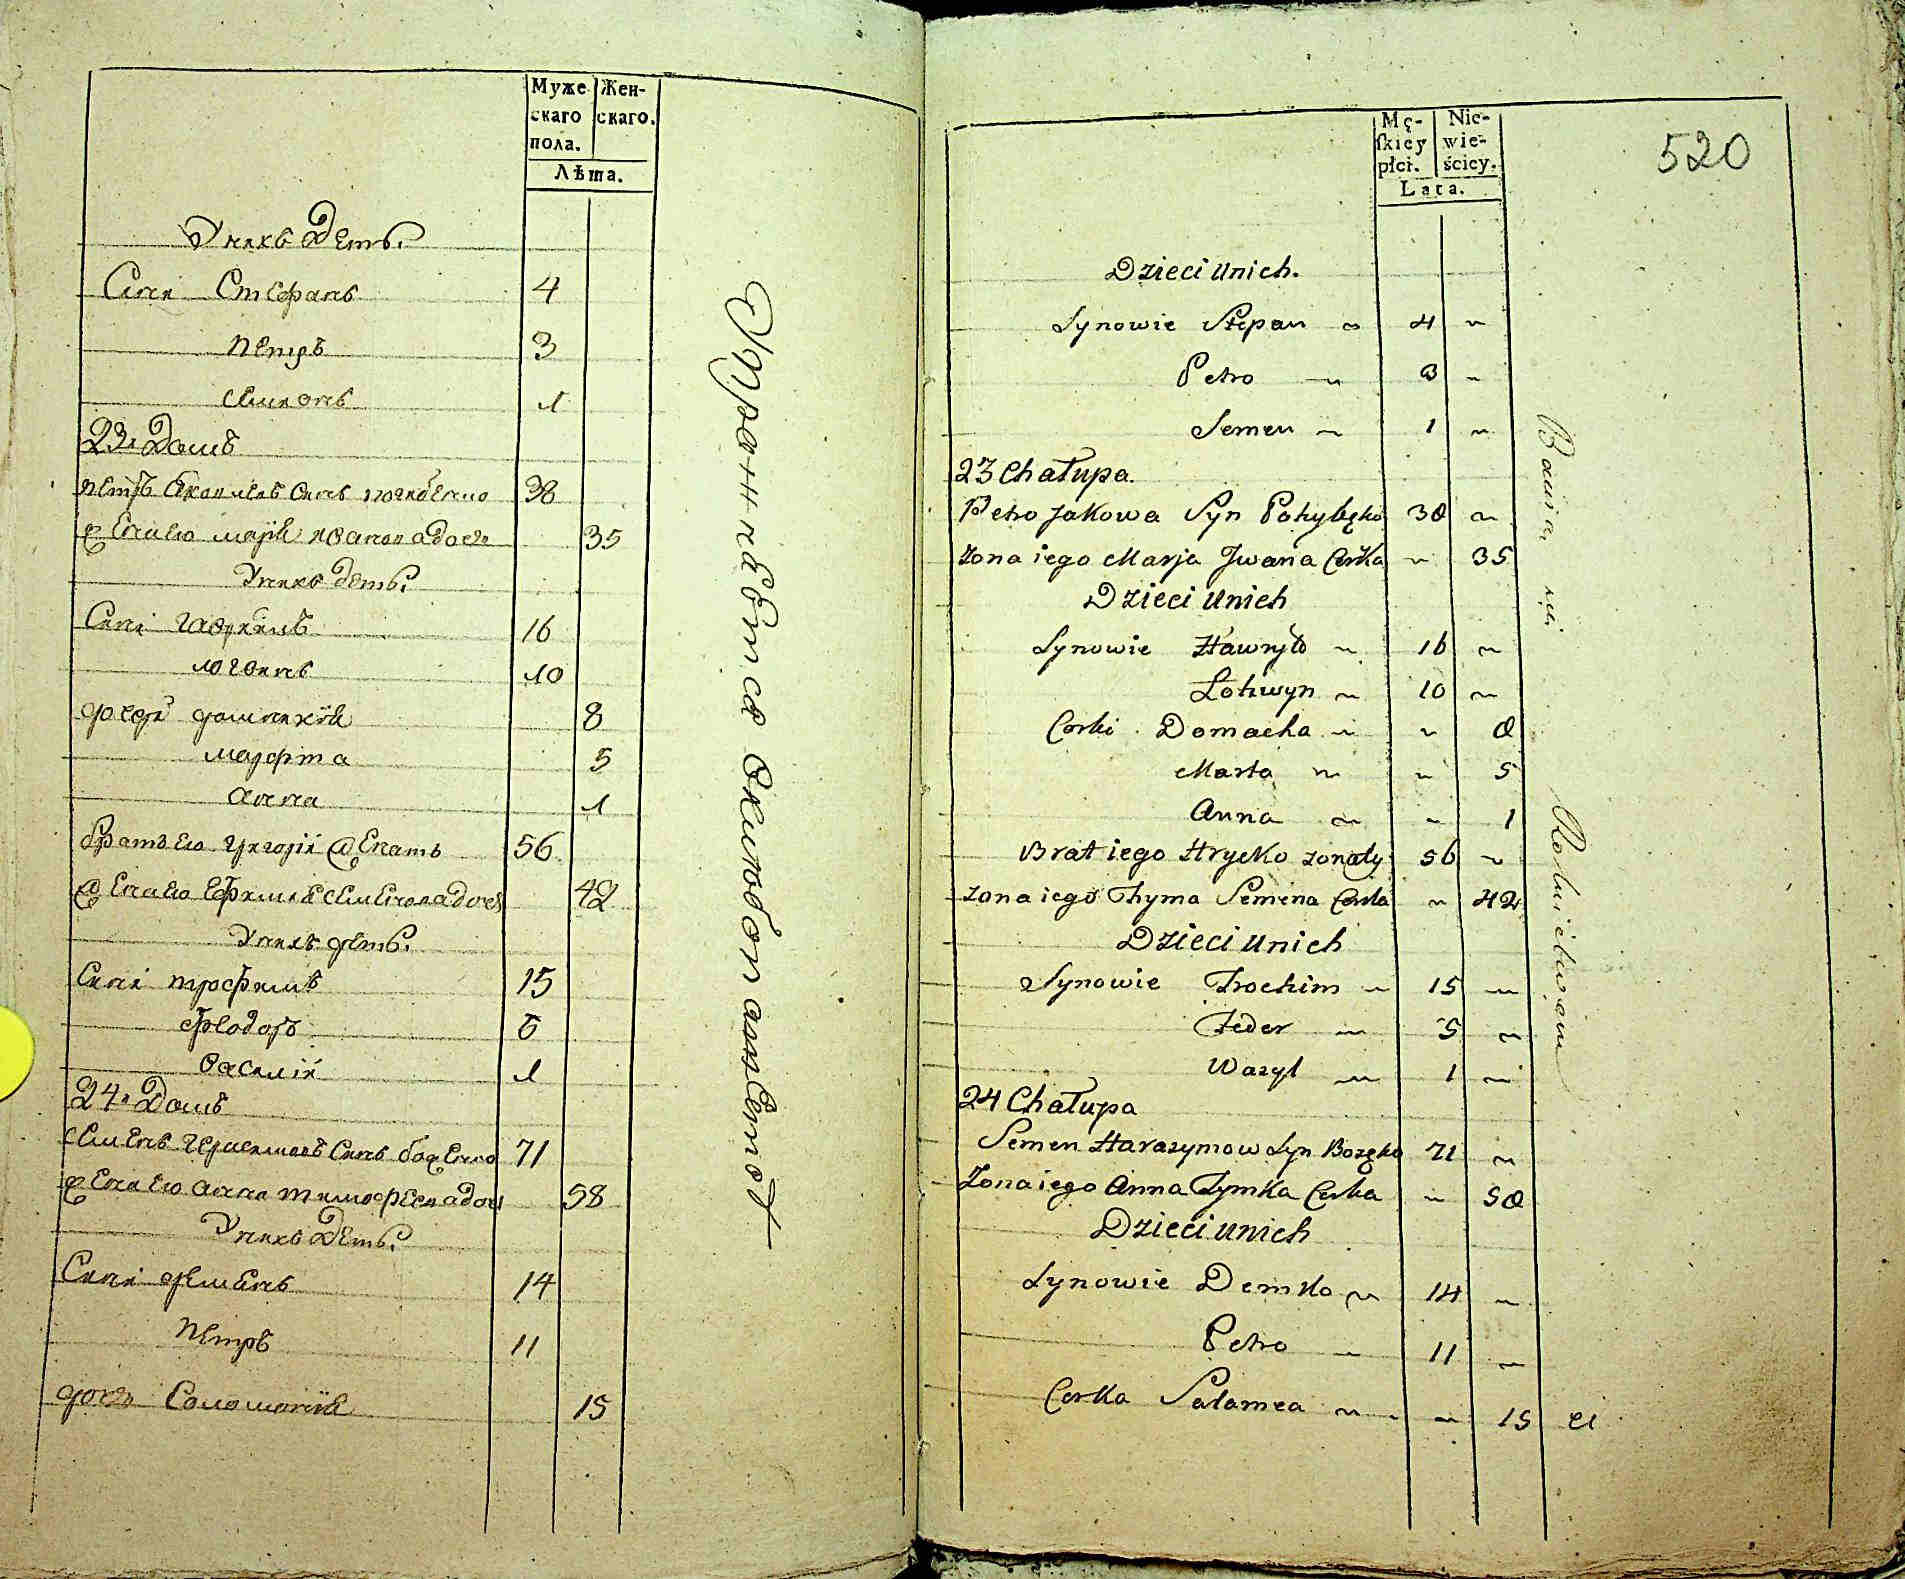 Муже Жен-
скаго скаго.
пола.
Лѣта.
У нихъ Дети.
Сыни Стефанъ 4
Петръ 3
Симонъ 1
23. Домъ
Петръ Яковлевъ Сынъ 38
жена ево марія иванова дочь 35
У нихъ дети.
Сыни гаврилъ 16
логвинъ 10
домникія 8
марфта 5
анна 1
братъ ево григорій женатъ 56
жена ево Ефимія Семенова дочь 42
У нихъ дети.
Сыни трофимъ 15
Феодоръ 5
василій 1
24. Домъ
Семенъ Сынъ 71
жена ево анна тимофеева дочь 58
У нихъ Дети.
Сыни деменъ 14
Петръ 11
дочь Соломонія 15
520
Mę- Nie-
ſkiey wie-
płci. ściey.
Lata.
Dzieci unich.
Synowie Stepan ~ 4 ~
Petro ~ 3 ~
Semen ~ 1 ~
23 Chałupa.
Petro Jakowa Syn Pohybęko 38 ~
Zona iego Marja Jwana Corka ~ 35
Dzieci Unich
Synowie Hawryło ~ 16 ~
Łohwyn ~ 10 ~
Corki Domacha ~ ~ 8
Marta ~ ~ 5
Anna ~ ~ 1
Brat iego Hryćko zonaty 56 ~
zona iego Fhyma Semena Corka ~ 42
Dzieci unich
Synowie Trochim ~ 15 ~
Feder ~ 5 ~
Wazyl ~ 1 ~
24 Chałupa
Semen Harazymow Syn Bozęko 71 ~
Zona iego Anna Tymka Corka ~ 58
Dzieci unich
Synowie Demko ~ 14 ~
Petro ~ 11 ~
Corka Salamea ~ ~ 15